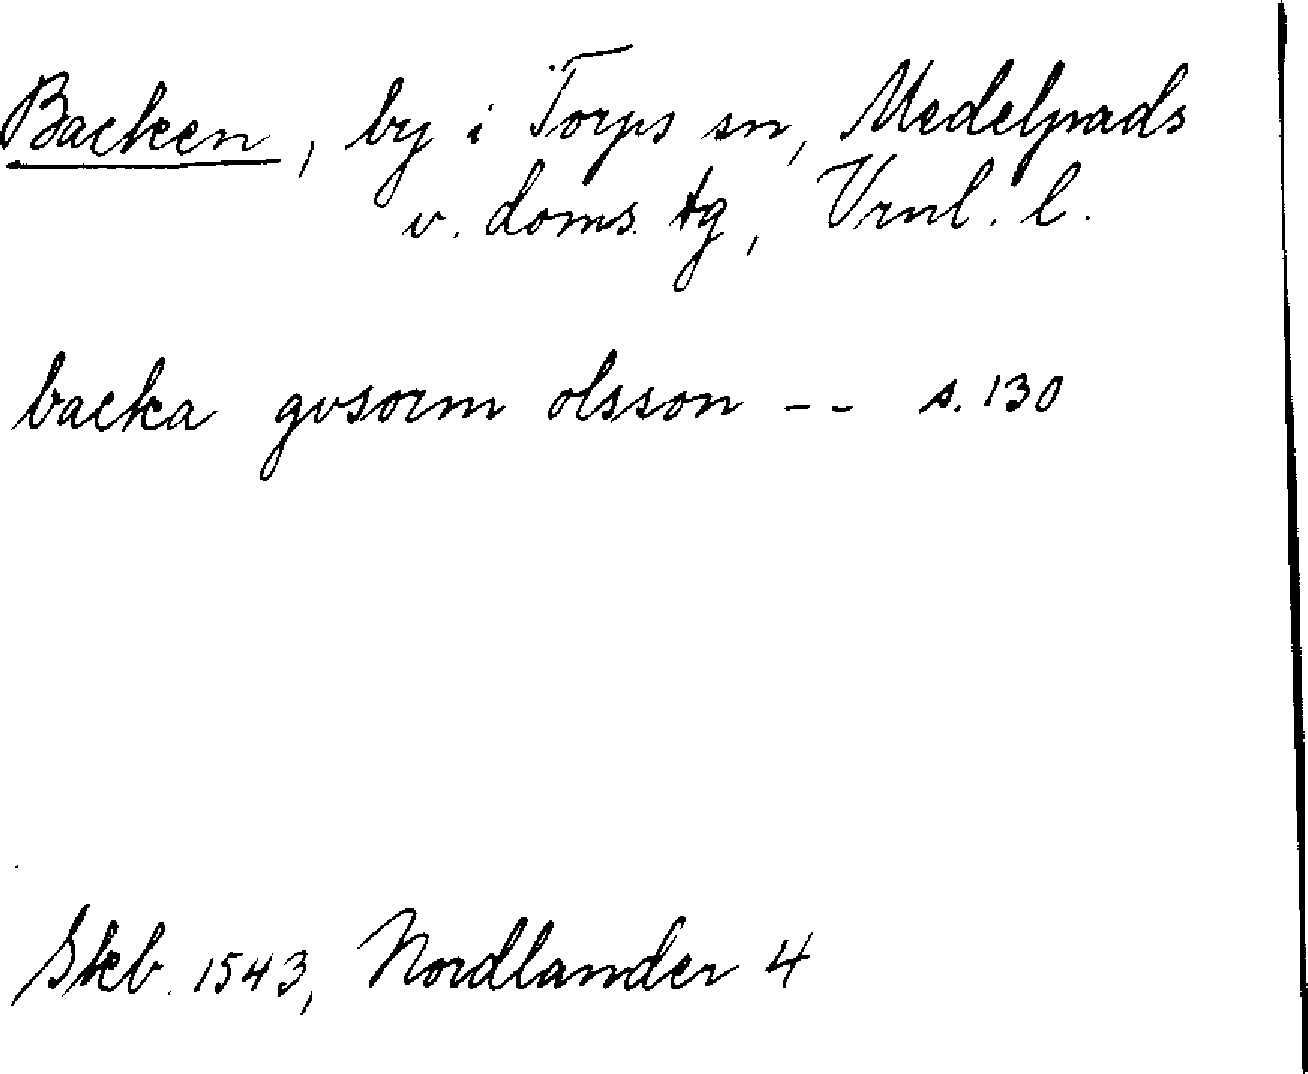 Backen, by i Torps sn, Medelpads
v. doms. tg, Vrnl. l.
backa gvsorm olsson -- s. 130
Skb. 1543, Nordlander 4